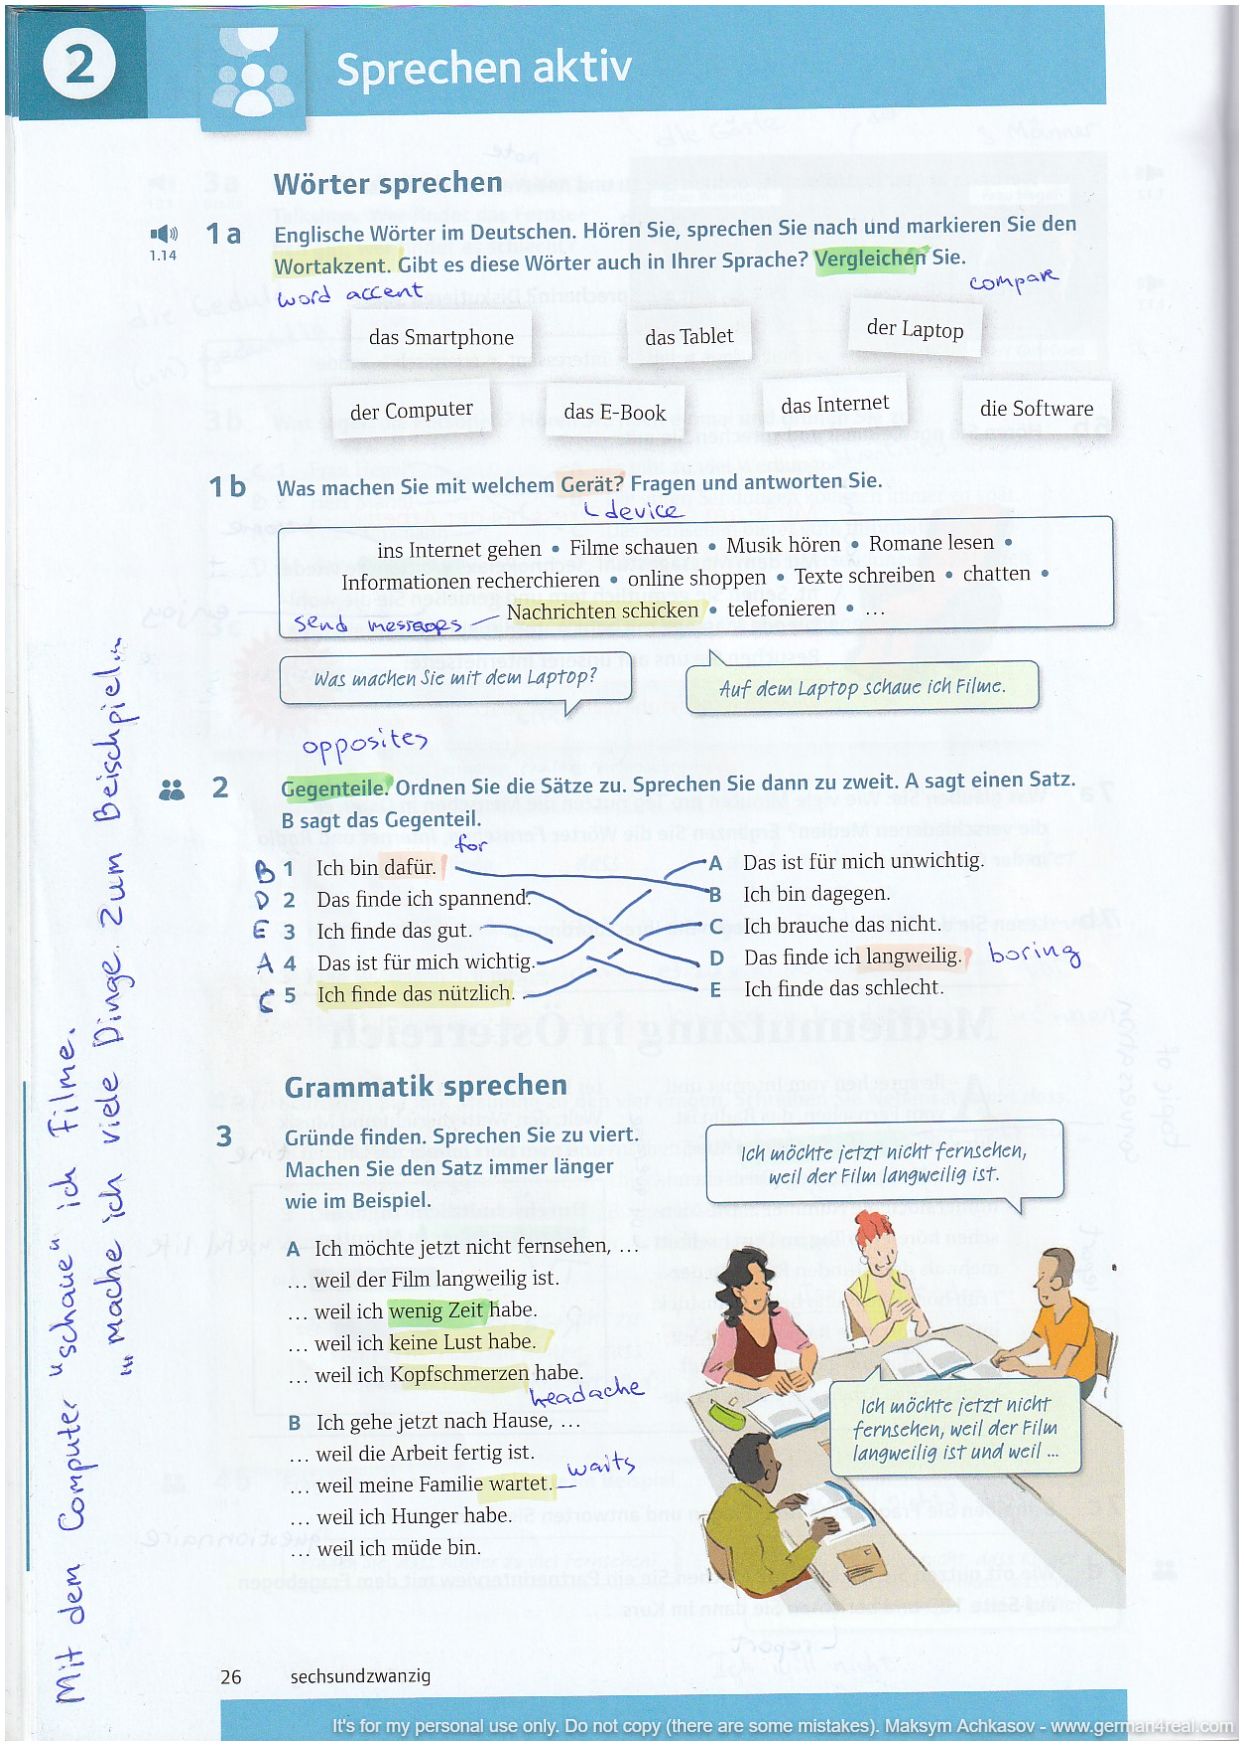 2
Sprechen aktiv
Wörter sprechen
1.14
1a Englische Wörter im Deutschen. Hören Sie, sprechen Sie nach und markieren Sie den
Wortakzent. Gibt es diese Wörter auch in Ihrer Sprache? Vergleichen Sie.
word accent
compare
das Smartphone
das Tablet
der Laptop
der Computer
das E-Book
das Internet
die Software
1b Was machen Sie mit welchem Gerät? Fragen und antworten Sie.
device
ins Internet gehen • Filme schauen • Musik hören • Romane lesen •
Informationen recherchieren • online shoppen • Texte schreiben • chatten •
Nachrichten schicken • telefonieren • ...
send messages
Was machen Sie mit dem Laptop?
Auf dem Laptop schaue ich Filme.
opposites
2 Gegenteile. Ordnen Sie die Sätze zu. Sprechen Sie dann zu zweit. A sagt einen Satz.
B sagt das Gegenteil.
for
B 1 Ich bin dafür.
D 2 Das finde ich spannend.
E 3 Ich finde das gut.
A 4 Das ist für mich wichtig.
C 5 Ich finde das nützlich.
A Das ist für mich unwichtig.
B Ich bin dagegen.
C Ich brauche das nicht.
D Das finde ich langweilig. boring
E Ich finde das schlecht.
Grammatik sprechen
3 Gründe finden. Sprechen Sie zu viert.
Machen Sie den Satz immer länger
wie im Beispiel.
A Ich möchte jetzt nicht fernsehen, ...
... weil der Film langweilig ist.
... weil ich wenig Zeit habe.
... weil ich keine Lust habe.
... weil ich Kopfschmerzen habe.
headache
B Ich gehe jetzt nach Hause, ...
... weil die Arbeit fertig ist.
... weil meine Familie wartet. waits
... weil ich Hunger habe.
... weil ich müde bin.
Ich möchte jetzt nicht fernsehen,
weil der Film langweilig ist.
Ich möchte jetzt nicht
fernsehen, weil der Film
langweilig ist und weil ...
Mit dem Computer "schaue" ich Filme.
"mache ich viele Dinge. Zum Beischpiel...
26 sechsundzwanzig
It's for my personal use only. Do not copy (there are some mistakes). Maksym Achkasov - www.german4real.com